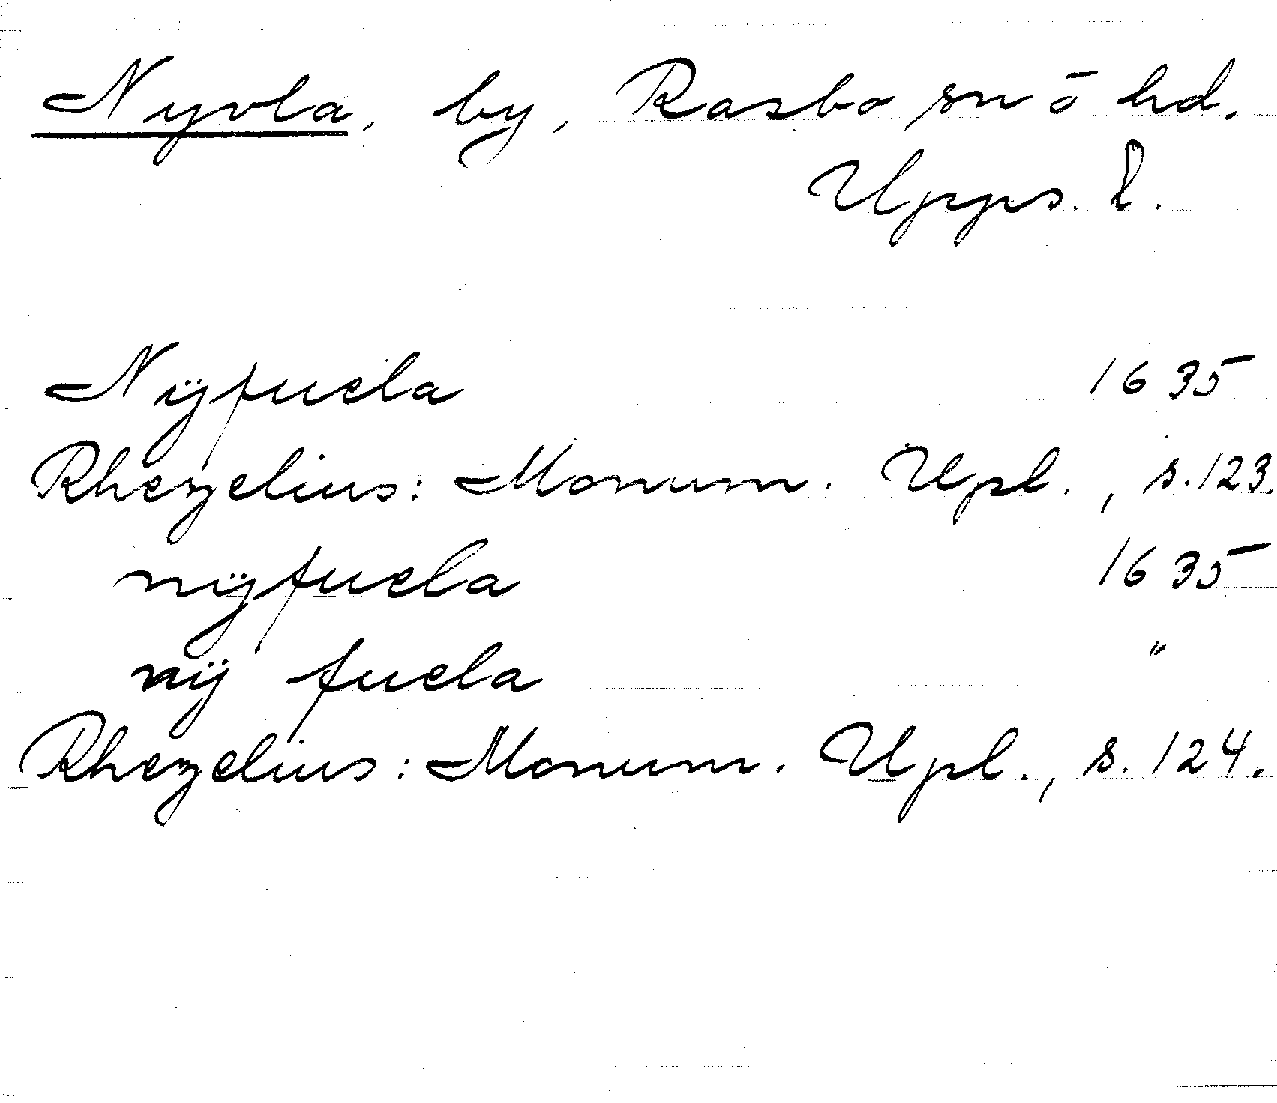 Nyvla, by, Rasbo sn ō hd.
Upps. l.
Nÿfuela 1635
Rhezelius: Monum. Upl., s. 123.
nÿfuela 1635
nÿ fuela "
Rhezelius: Monum. Upl., s. 124.